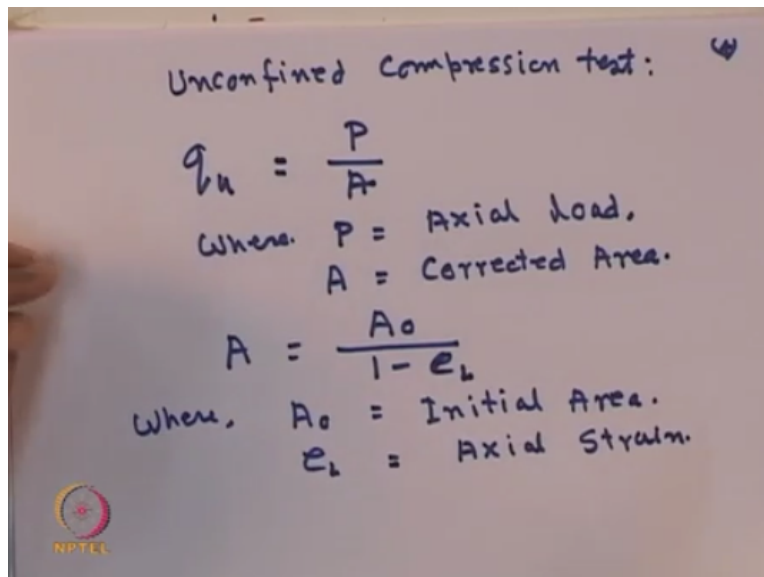 Unconfined Compression test:
q_u = P / A
Where. P = Axial Load.
A = Corrected Area.
A = A_0 / 1 - e_L
Where, A_0 = Initial Area.
e_L = Axial Strain.
NPTEL